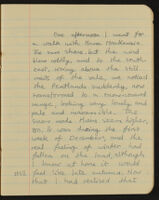 One afternoon I went for
a walk with Bruce MacKenzie.
The sun shone, but the wind
blew coldly, and to the south-
east, rising above the still
mists of the vale, we noticed
the Pentlands suddenly, now
transformed to a snow-covered
range, looking very lonely and
pale and inaccessible. The
snow made them seem higher,
too. It was during the first
week of December, and the
real feeling of winter had
fallen on the land, although
I knew at home it would
feel like late autumn. Now
that I had realised that